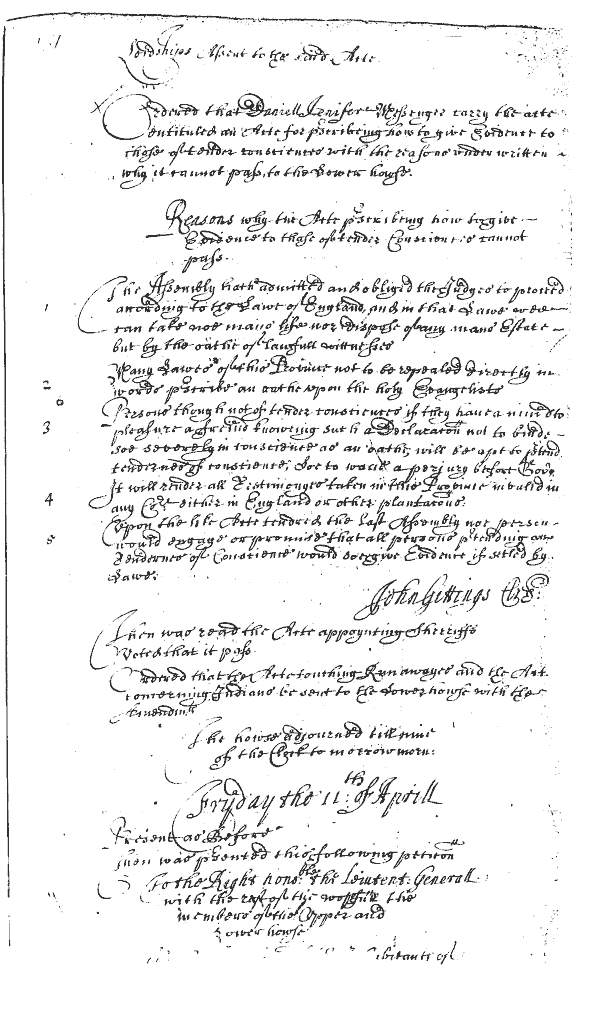 Lordships Assent to the said Acte
Ordered that Daniell Jenifer Messenger carry the acte
entituled an Acte for pscribeing how to give Evidence to
those of tender consciences with the reasons underwritten
why it cannot pass, to the Lower howse.
Reasons why the Acte pscribeing how to give
Evidence to those of tender Consciences cannot
pass.
1 The Assembly hath admitted and obliged the Judges to proceed
according to the Lawe of England, and in that Lawe wee
can take noe mans life nor dispose of any mans Estate
but by the oathe of lawfull witnesses
2 Many Lawes of this Province not to be repealed directly in
words pscribe an oathe upon the holy Evangelists
3 Persons though not of tender consciences if they have a mind to
pleasure a freind knoweing such a Declaracon not to binde
soe severely in conscience as an oathe, will be apt to ptend
tendernes of conscience, soe to wave a perjury before God
4 It will render all Testimonyes taken in this Province invalid in
any Cort either in England or other plantacons.
5 Upon the like Acte tendred the last Assembly noe person
would engage or promise that all persons ptending
Tendernes of Conscience would soe give Evidence if setled by
Lawe.
John Gittings Clre.
Then was read the Acte appoynting Sherriffs
Voted that it pass
Ordered that the Acte touching Runawayes and the Act
concerning Indians be sent to the Lower howse with the
Amendmts
The howse adjourned till nine
of the Clock to morrow morn:
Fryday the 11th: of Aprill
Present as Before
Then was psented this following peticon
To the Right honoble the Leiutent: Generall
with the rest of the worpfull the
members of the Upper and
Lower howse